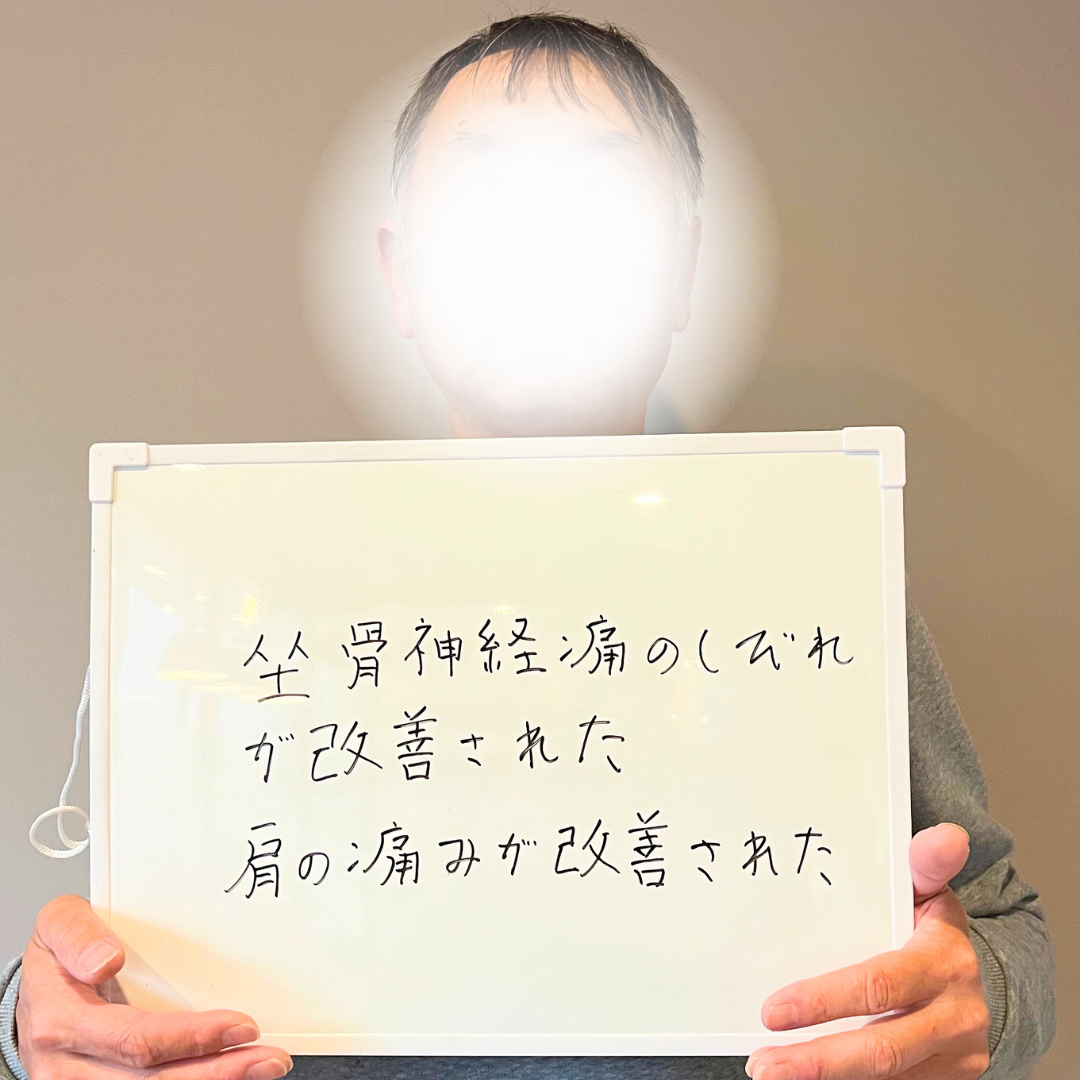 坐骨神経痛のしびれ
が改善された
肩の痛みが改善された